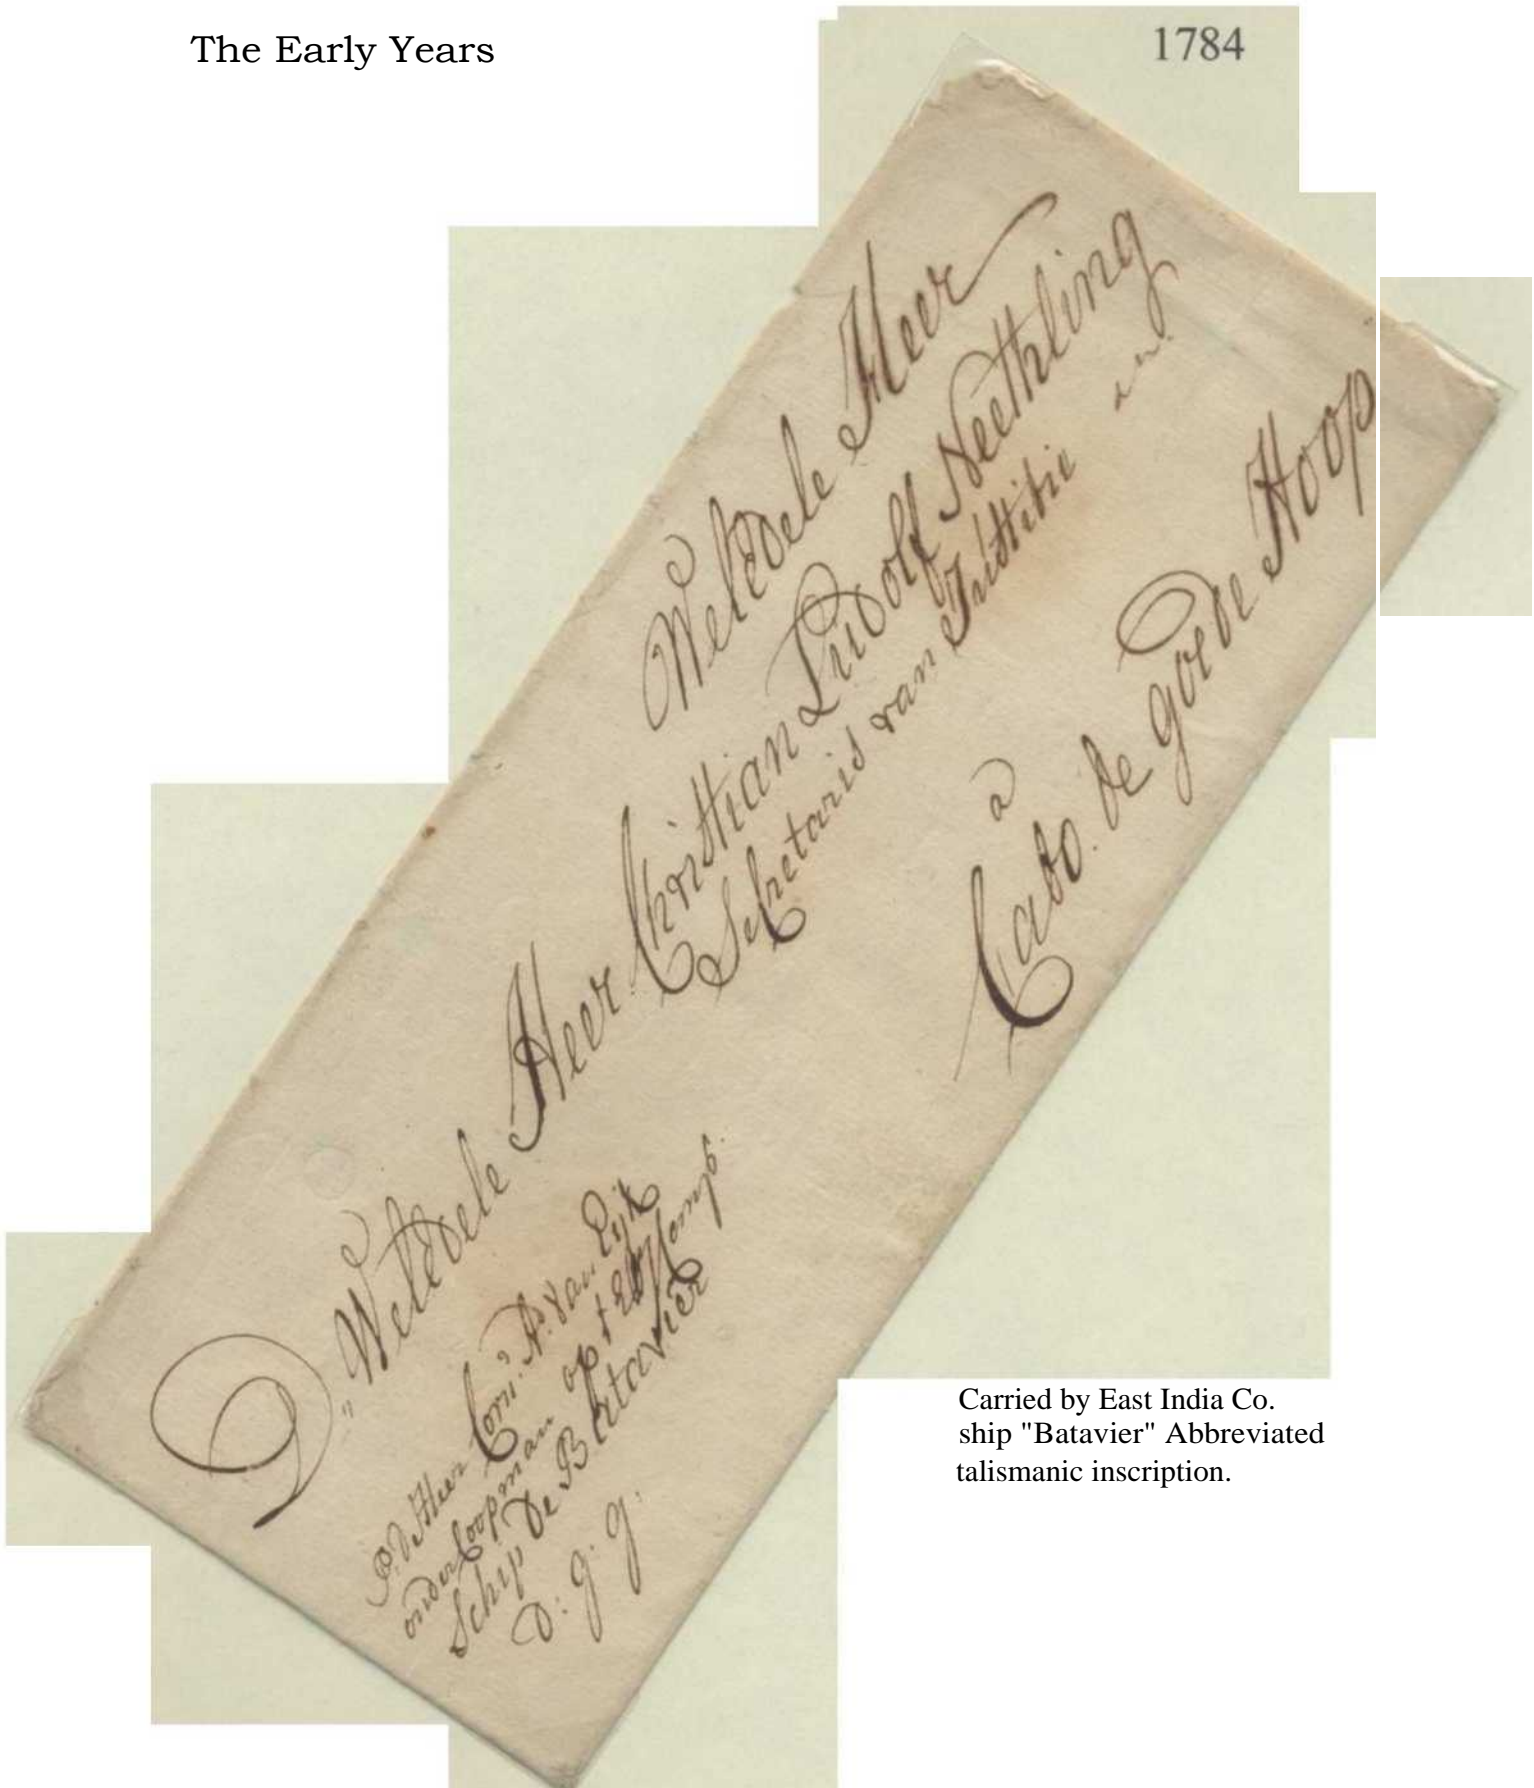 The Early Years
1784
WelEdele Heer
WelEdele Heer Christian Ludolf Neethling
Secretaris van Justitie
a
Cabo. de goede Hoop
P:r d' Heer Corn:s A:s van Eijk
onderCoopman op t E Comp:s
Schip De Batavier
D: g: g:
Carried by East India Co.
ship "Batavier" Abbreviated
talismanic inscription.